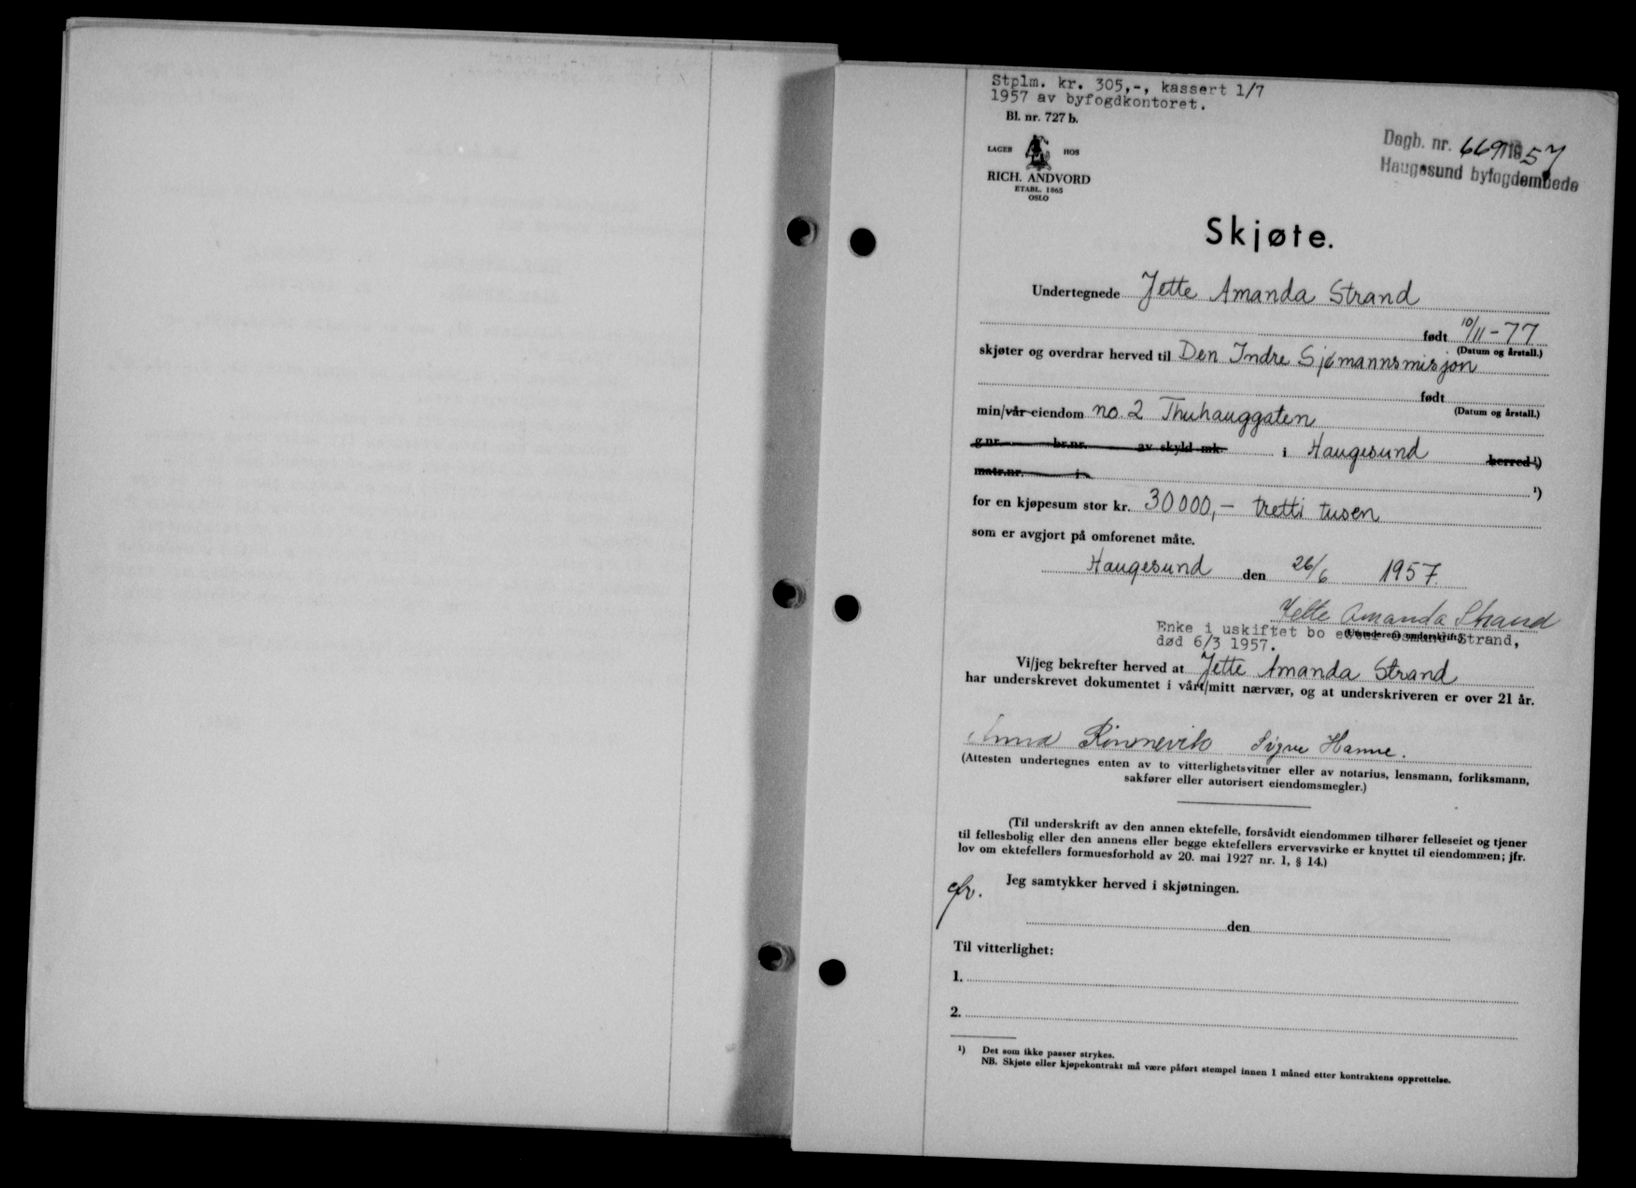 Stplm. kr. 305,-, kassert 1/7
1957 av byfogdkontoret.
Bl. nr. 727 b.
Dagb. nr. 669/1957
Haugesund byfogdembede
LAGER HOS
RICH. ANDVORD
ETABL. 1865
OSLO
Skjøte.
Undertegnede Jette Amanda Strand
født 10/11-77
(Datum og årstall.)
skjøter og overdrar herved til Den Indre Sjømannsmisjon
født
(Datum og årstall.)
min/vår eiendom no. 2 Thuhauggaten
g.nr. br.nr. av skyld mk. i Haugesund herred ¹)
matr.nr. i ¹)
for en kjøpesum stor kr. 30000,- tretti tusen
som er avgjort på omforenet måte.
Haugesund den 26/6 1957.
Jette Amanda Strand
(Utstederens underskrift)
Enke i uskiftet bo etter Osmund Strand,
død 6/3 1957.
Vi/jeg bekrefter herved at Jette Amanda Strand
har underskrevet dokumentet i vårt/mitt nærvær, og at underskriveren er over 21 år.
Anna Rønnevik Signe Hanne.
(Attesten undertegnes enten av to vitterlighetsvitner eller av notarius, lensmann, forliksmann,
sakfører eller autorisert eiendomsmegler.)
(Til underskrift av den annen ektefelle, forsåvidt eiendommen tilhører felleseiet og tjener
til fellesbolig eller den annens eller begge ektefellers ervervsvirke er knyttet til eiendommen; jfr.
lov om ektefellers formuesforhold av 20. mai 1927 nr. 1, § 14.)
Jeg samtykker herved i skjøtningen.
den
Til vitterlighet:
1.
2.
¹) Det som ikke passer strykes.
NB. Skjøte eller kjøpekontrakt må være påført stempel innen 1 måned etter kontraktens opprettelse.